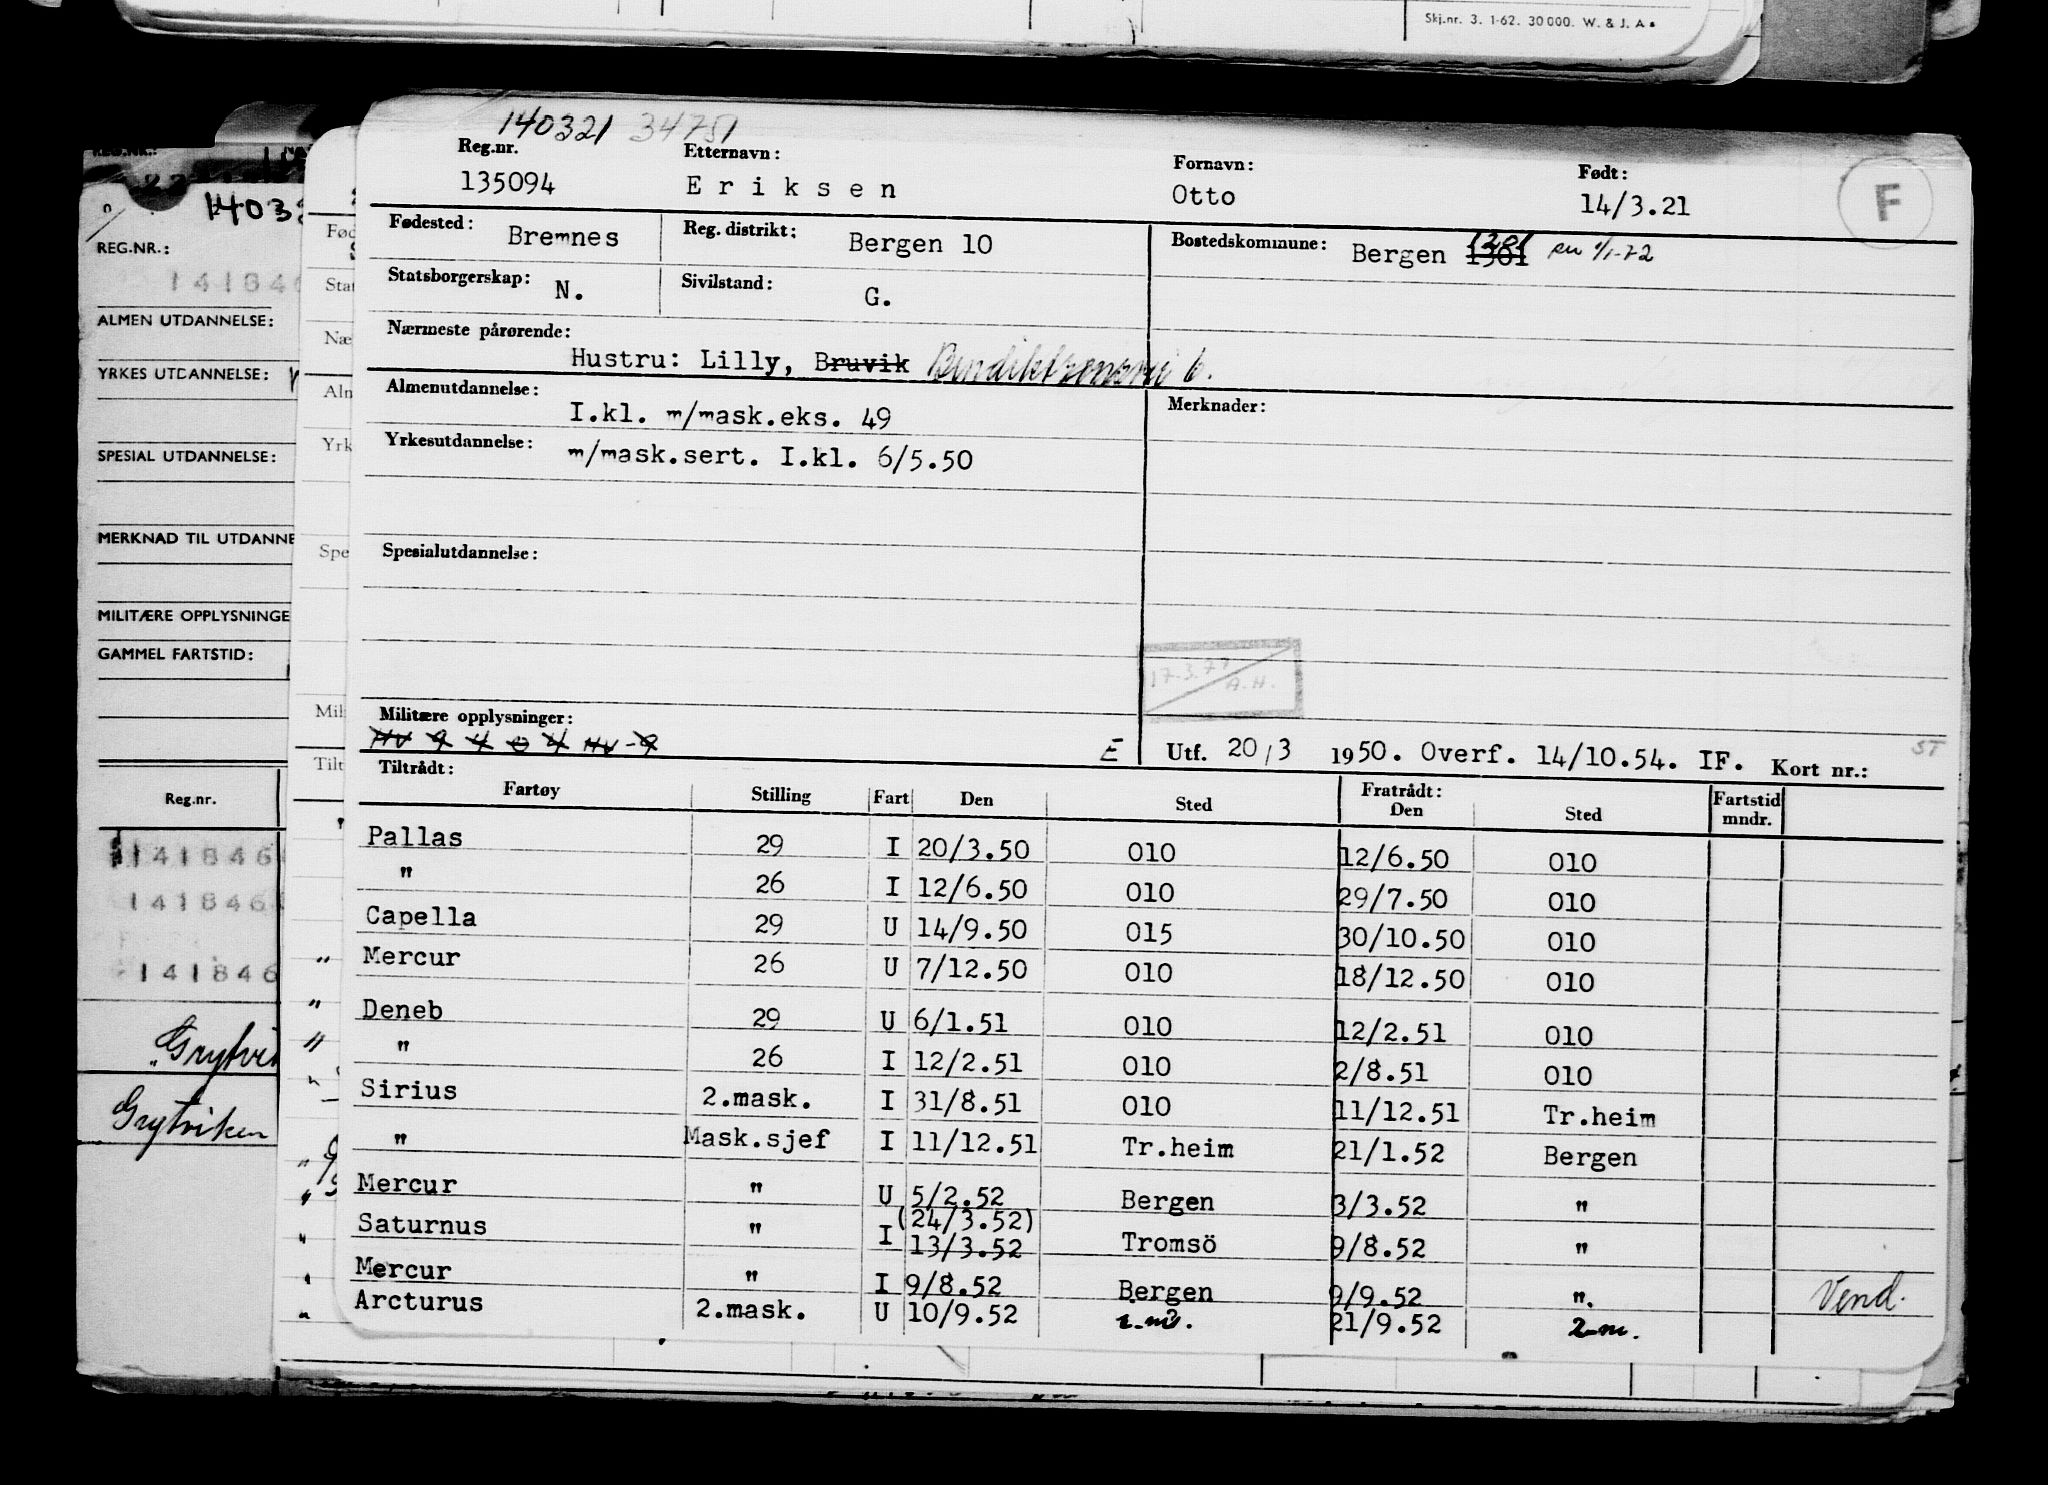 Skj.nr. 3. 1-62. 30000. W. & J. A s
140321 34751
Reg.nr. Etternavn: Fornavn: Født:
135094 Eriksen Otto 14/3.21 F
Fødested: Bremnes Reg. distrikt: Bergen 10 Bostedskommune: Bergen 1301
Statsborgerskap: N. Sivilstand: G.
Nærmeste pårørende:
Hustru: Lilly, Bruvik
Almenutdannelse: Merknader:
I.kl. m/mask.eks. 49
Yrkesutdannelse: m/mask.sert. I.kl. 6/5.50
Spesialutdannelse:
17.3.77 A.H.
Militære opplysninger:
HV 9 4 0 4 HV-9 E Utf. 20/3 1950. Overf. 14/10.54. IF. Kort nr.: ST
Tiltrådt: Fratrådt: Fartstid
Fartøy Stilling Fart Den Sted Den Sted mndr.
Pallas 29 I 20/3.50 010 12/6.50 010
" 26 I 12/6.50 010 29/7.50 010
Capella 29 U 14/9.50 015 30/10.50 010
Mercur 26 U 7/12.50 010 18/12.50 010
Deneb 29 U 6/1.51 010 12/2.51 010
" 26 I 12/2.51 010 2/8.51 010
Sirius 2.mask. I 31/8.51 010 11/12.51 Tr.heim
" Mask.sjef I 11/12.51 Tr.heim 21/1.52 Bergen
Mercur " U 5/2.52 Bergen 3/3.52 "
(24/3.52)
Saturnus " I 13/3.52 Tromsö 9/8.52 "
Mercur " I 9/8.52 Bergen 9/9.52 ".
Arcturus 2.mask. U 10/9.52 21/9.52
Vend.
REG.NR.:
ALMEN UTDANNELSE:
YRKES UTDANNELSE:
SPESIAL UTDANNELSE:
MERKNAD TIL UTDANNE
MILITÆRE OPPLYSNINGE
GAMMEL FARTSTID:
Reg.nr.
141846
141846
141846
Grytvi
Grytviken